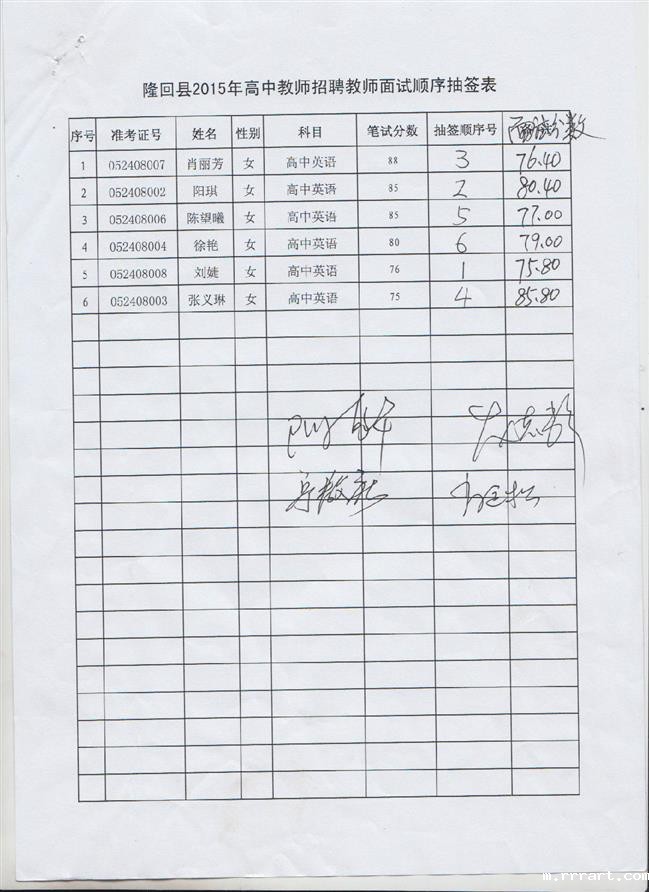 隆回县2015年高中教师招聘教师面试顺序抽签表
序号 准考证号 姓名 性别 科目 笔试分数 抽签顺序号 面试分数
1 052408007 肖丽芳 女 高中英语 88 3 76.40
2 052408002 阳琪 女 高中英语 85 2 80.40
3 052408006 陈望曦 女 高中英语 85 5 77.00
4 052408004 徐艳 女 高中英语 80 6 79.00
5 052408008 刘婕 女 高中英语 76 1 75.80
6 052408003 张义琳 女 高中英语 75 4 85.80
m.rrrart.com